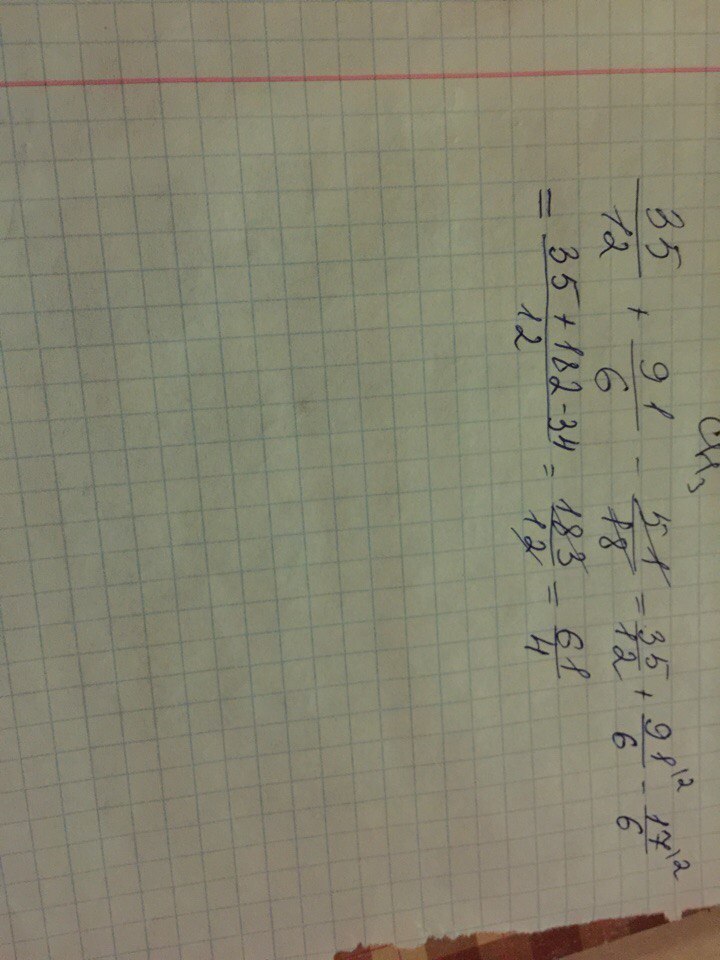 CH₃
35/12 + 91/6 - 51/18 = 35/12 + 91\2/6 - 17\2/6
= 35+182-34/12 = 183/12 = 61/4